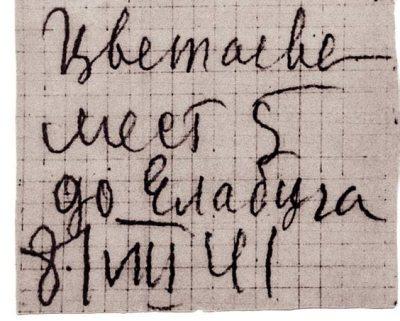 Цветаеве
мест 5
до Елабуга
8/VIII 41